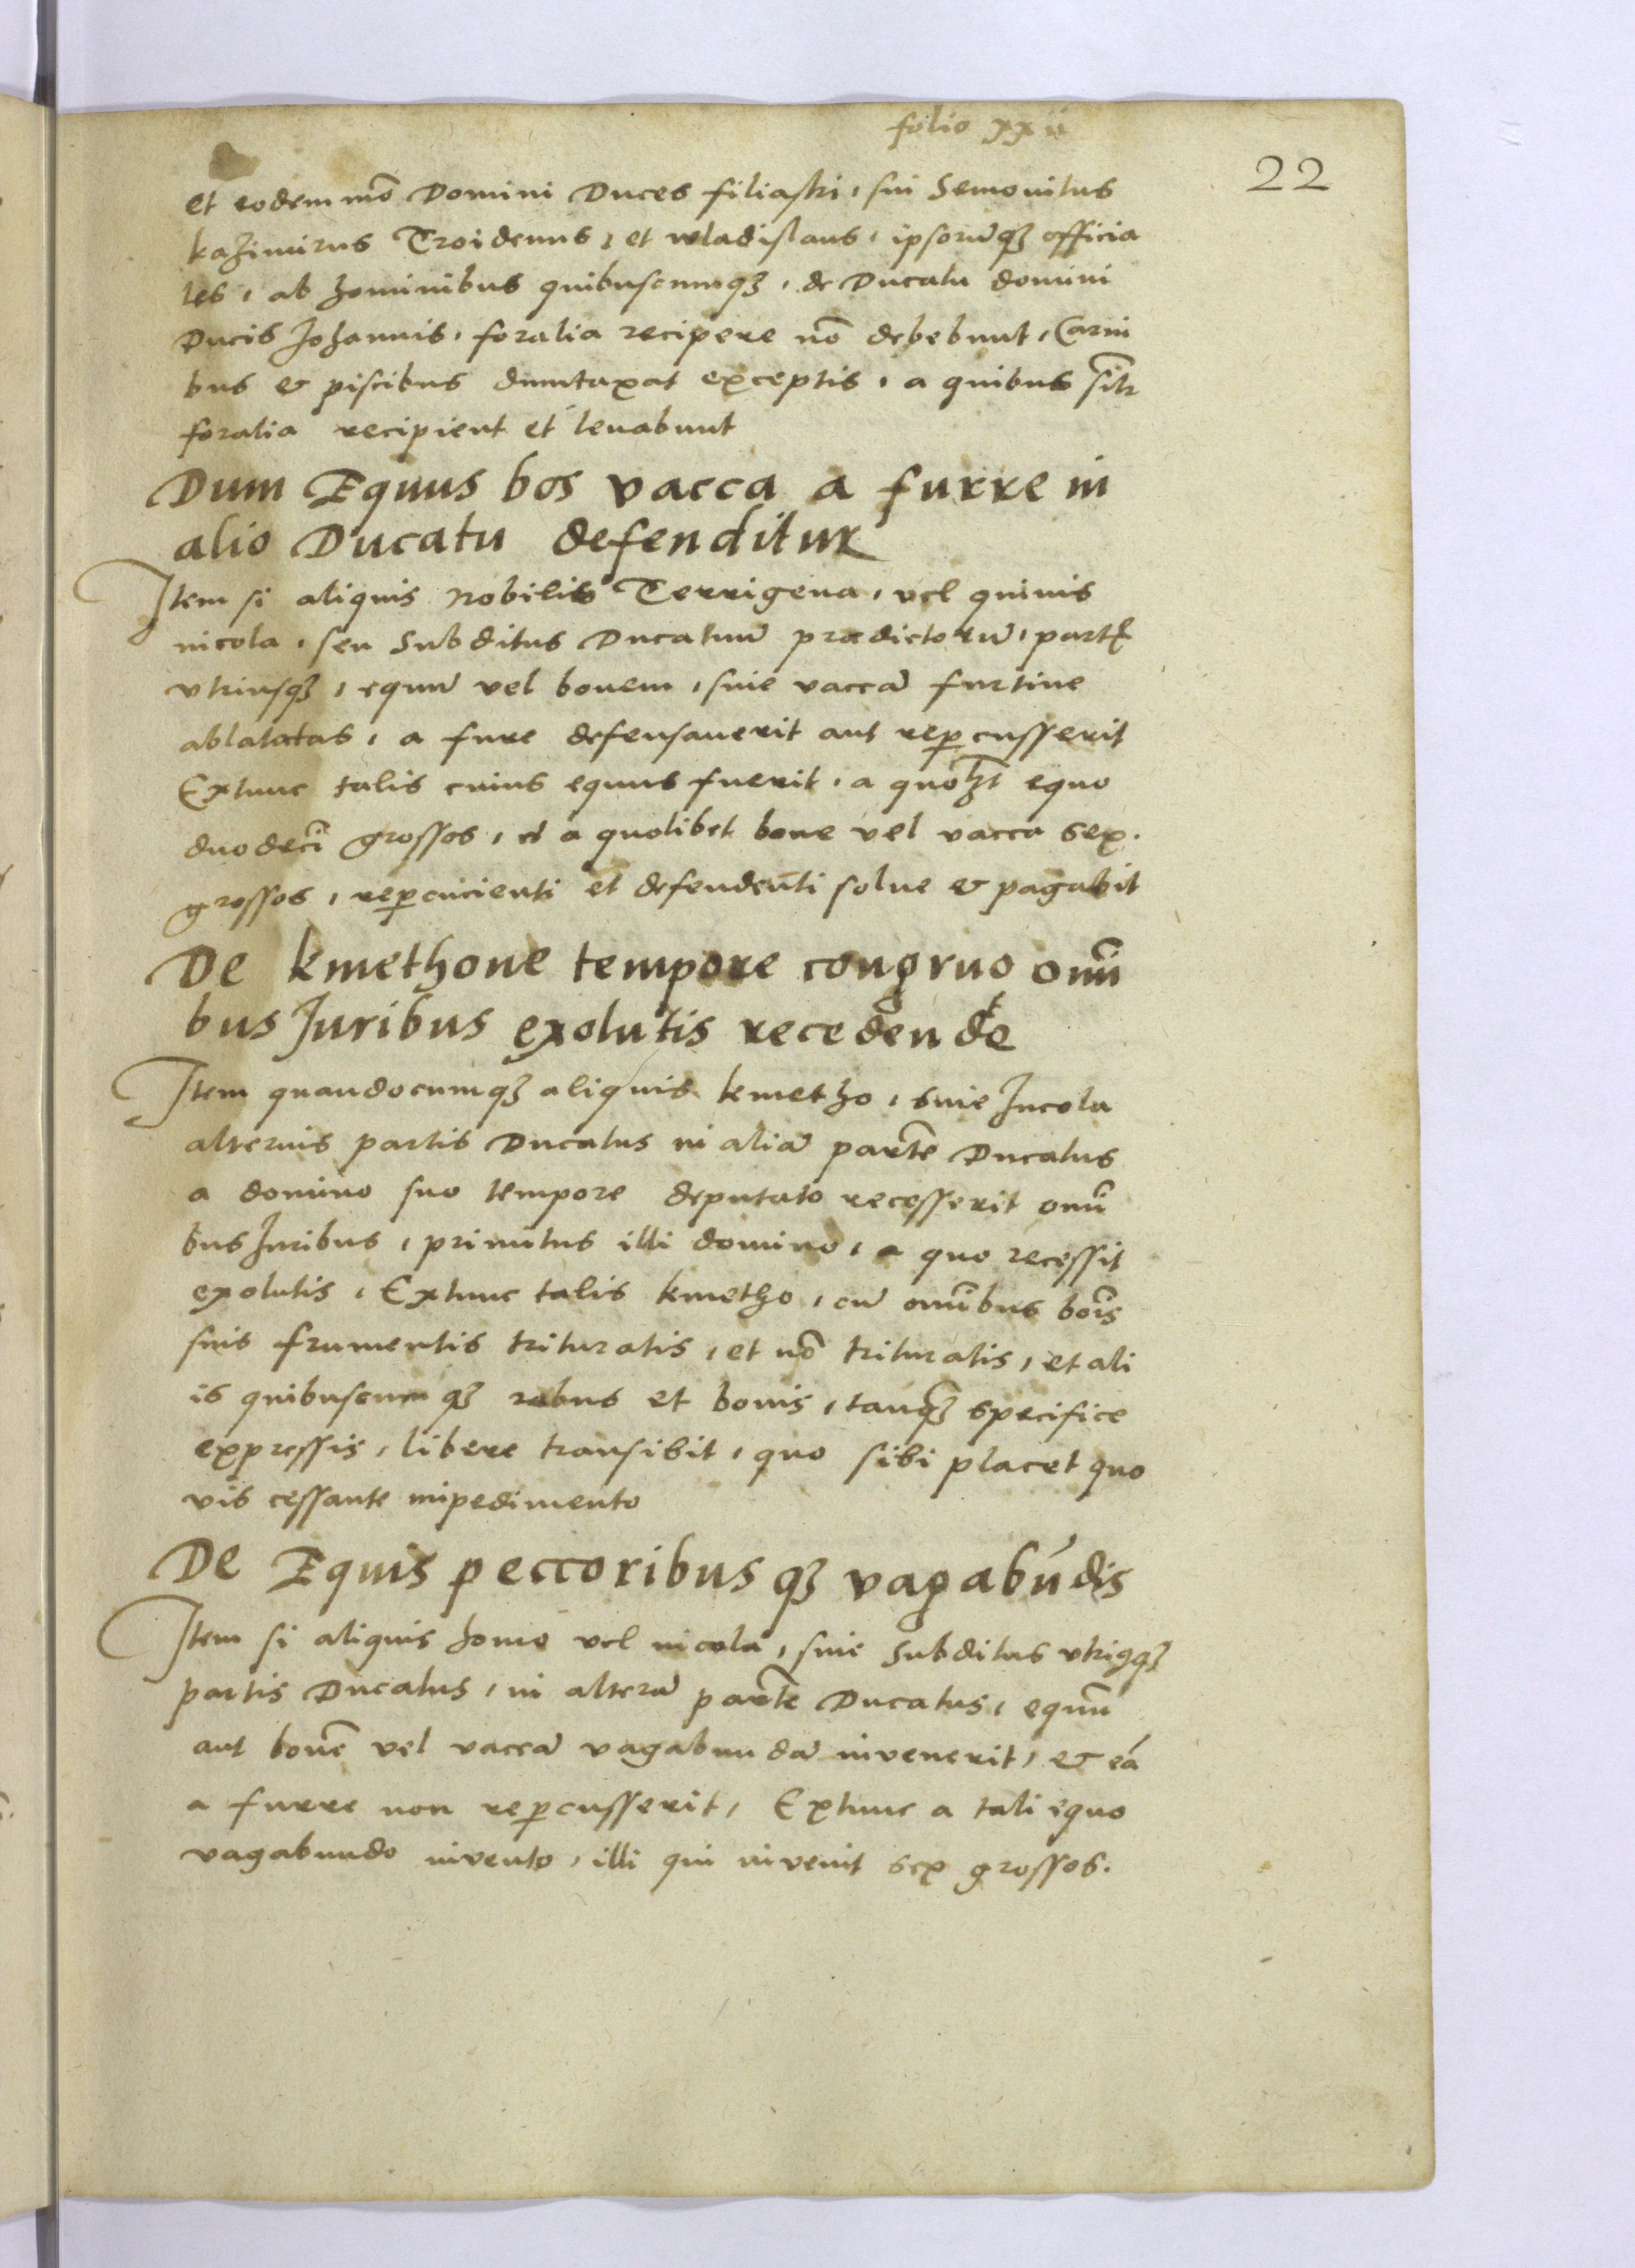 folio xxii
22
et eodem mo᷃ Domini Duces filiastri, sui Semouitus
kazimirus Troidenus, et wladislaus, ipsorūqꝫ officia
les, ab hominibus quibuscumqꝫ, de Ducatu domini
Ducis Johannis, foralia recipere nō debebunt, Carni
bus & piscibus dumtaxat exceptis, a quibus
foralia recipient et leuabunt
Dum Equus bos vacca a furre in
alio Ducatu defenditur
Item si aliquis Nobilis Terrigena, vel quiuis
incola, seu Subditus Ducatuum prædictorū,
vtriusqꝫ, equū vel bouem, siue vaccā furtiue
ablatatas, a fure defensauerit aut reꝑcusserit
Extunc talis cuius equus fuerit, a quolꝫt equo
duodecī grossos, et a quolibet boue vel vacca sex.
grossos, reꝑcucienti et defendēnti solue & pagabit
De kmethone tempore congruo omī
bus Juribus exolutis recedende
Item quandocumqꝫ aliquis kmetho, siue Jncola
alteruis partis Ducatus in aliā partē Ducatus
a domino suo tempore deputato recesserit omī
bus Juribus, primitus illi domino, a quo recessit
exolutis, Extunc talis kmetho, cū omībus boīs
suis frumentis trituratis, et nō trituratis, et ali
is quibuscumqꝫ rebus et bonis, tanqꝫ specifice
expressis, libere transibit, quo sibi placet quo
vis cessante impedimento
De Equis peccoribusqꝫ vagabūdis
Item si aliquis homo vel incola, siue Subditus vtriqqꝫ
partis Ducatus, in alterā partē Ducatus, equū
aut bouē vel vaccā vagabundā invenerit, & eā
a furre non reꝑcusserit, Extunc a tali equo
vagabundo invento, illi qui invenit sex grossos.